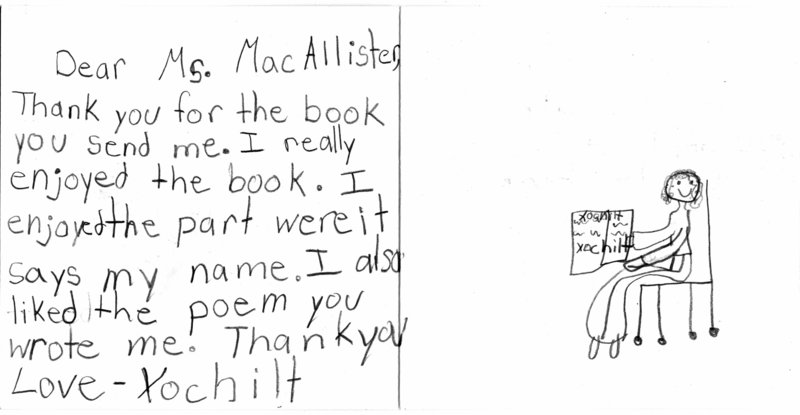 Dear Ms. MacAllister,
Thank you for the book
you send me. I really
enjoyed the book. I
enjoyed the part were it
says my name. I also
liked the poem you
wrote me. Thank you
Love - Xochilt
xochilt
xochilt